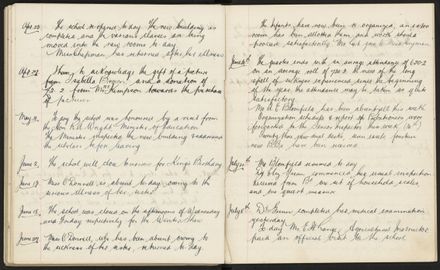 Apr. 20. The school reopens to-day. The new building is
completed and the various classes are being
moved into the new rooms to-day.
Miss Chapman has returned after her illness.
Apr. 22. I have to acknowledge the gift of a picture
from and a donation of
from Mrs Thompson towards the purchase
of pictures.
May 4. To-day the school was honoured by a visit from
the Hon. R. A. Wright, Minister of Education.
The Minister inspected the new building & addressed
the scholars before leaving.
June 2. The school will close to-morrow for King's Birthday.
June 17. Miss O'Donnell is absent to-day owing to the
serious illness of her sister.
June 18. The school was closed on the afternoons of Wednesday
and Friday respectively for the Winter Show.
June 22. Miss O'Donnell, who has been absent owing to
the sickness of her sister, returned to-day.
The Infants have now been re-organized, an extra
room has been allotted them and work should
proceed satisfactorily.
June 30. The quarter ends with an average attendance of
on an average roll of In view of the long
spell of sickness experienced since the beginning
of the year, the attendance may be taken as quite
satisfactory.
Mr A. E. Blomfield has been absent all this week.
Organisation schedule & report of Probationers were
forwarded to the Senior Inspector this week.
Twenty-four new dual desks, and seats for
new rooms have been received.
July Mr Blomfield resumed to-day.
commenced his annual inspection.
Received from Bd. one set of household scales
and one quart measure.
July 8. Dr Gunn completed her medical examination
yesterday.
To-day Mr Grange, Agricultural Instructor
paid an official visit to the school.